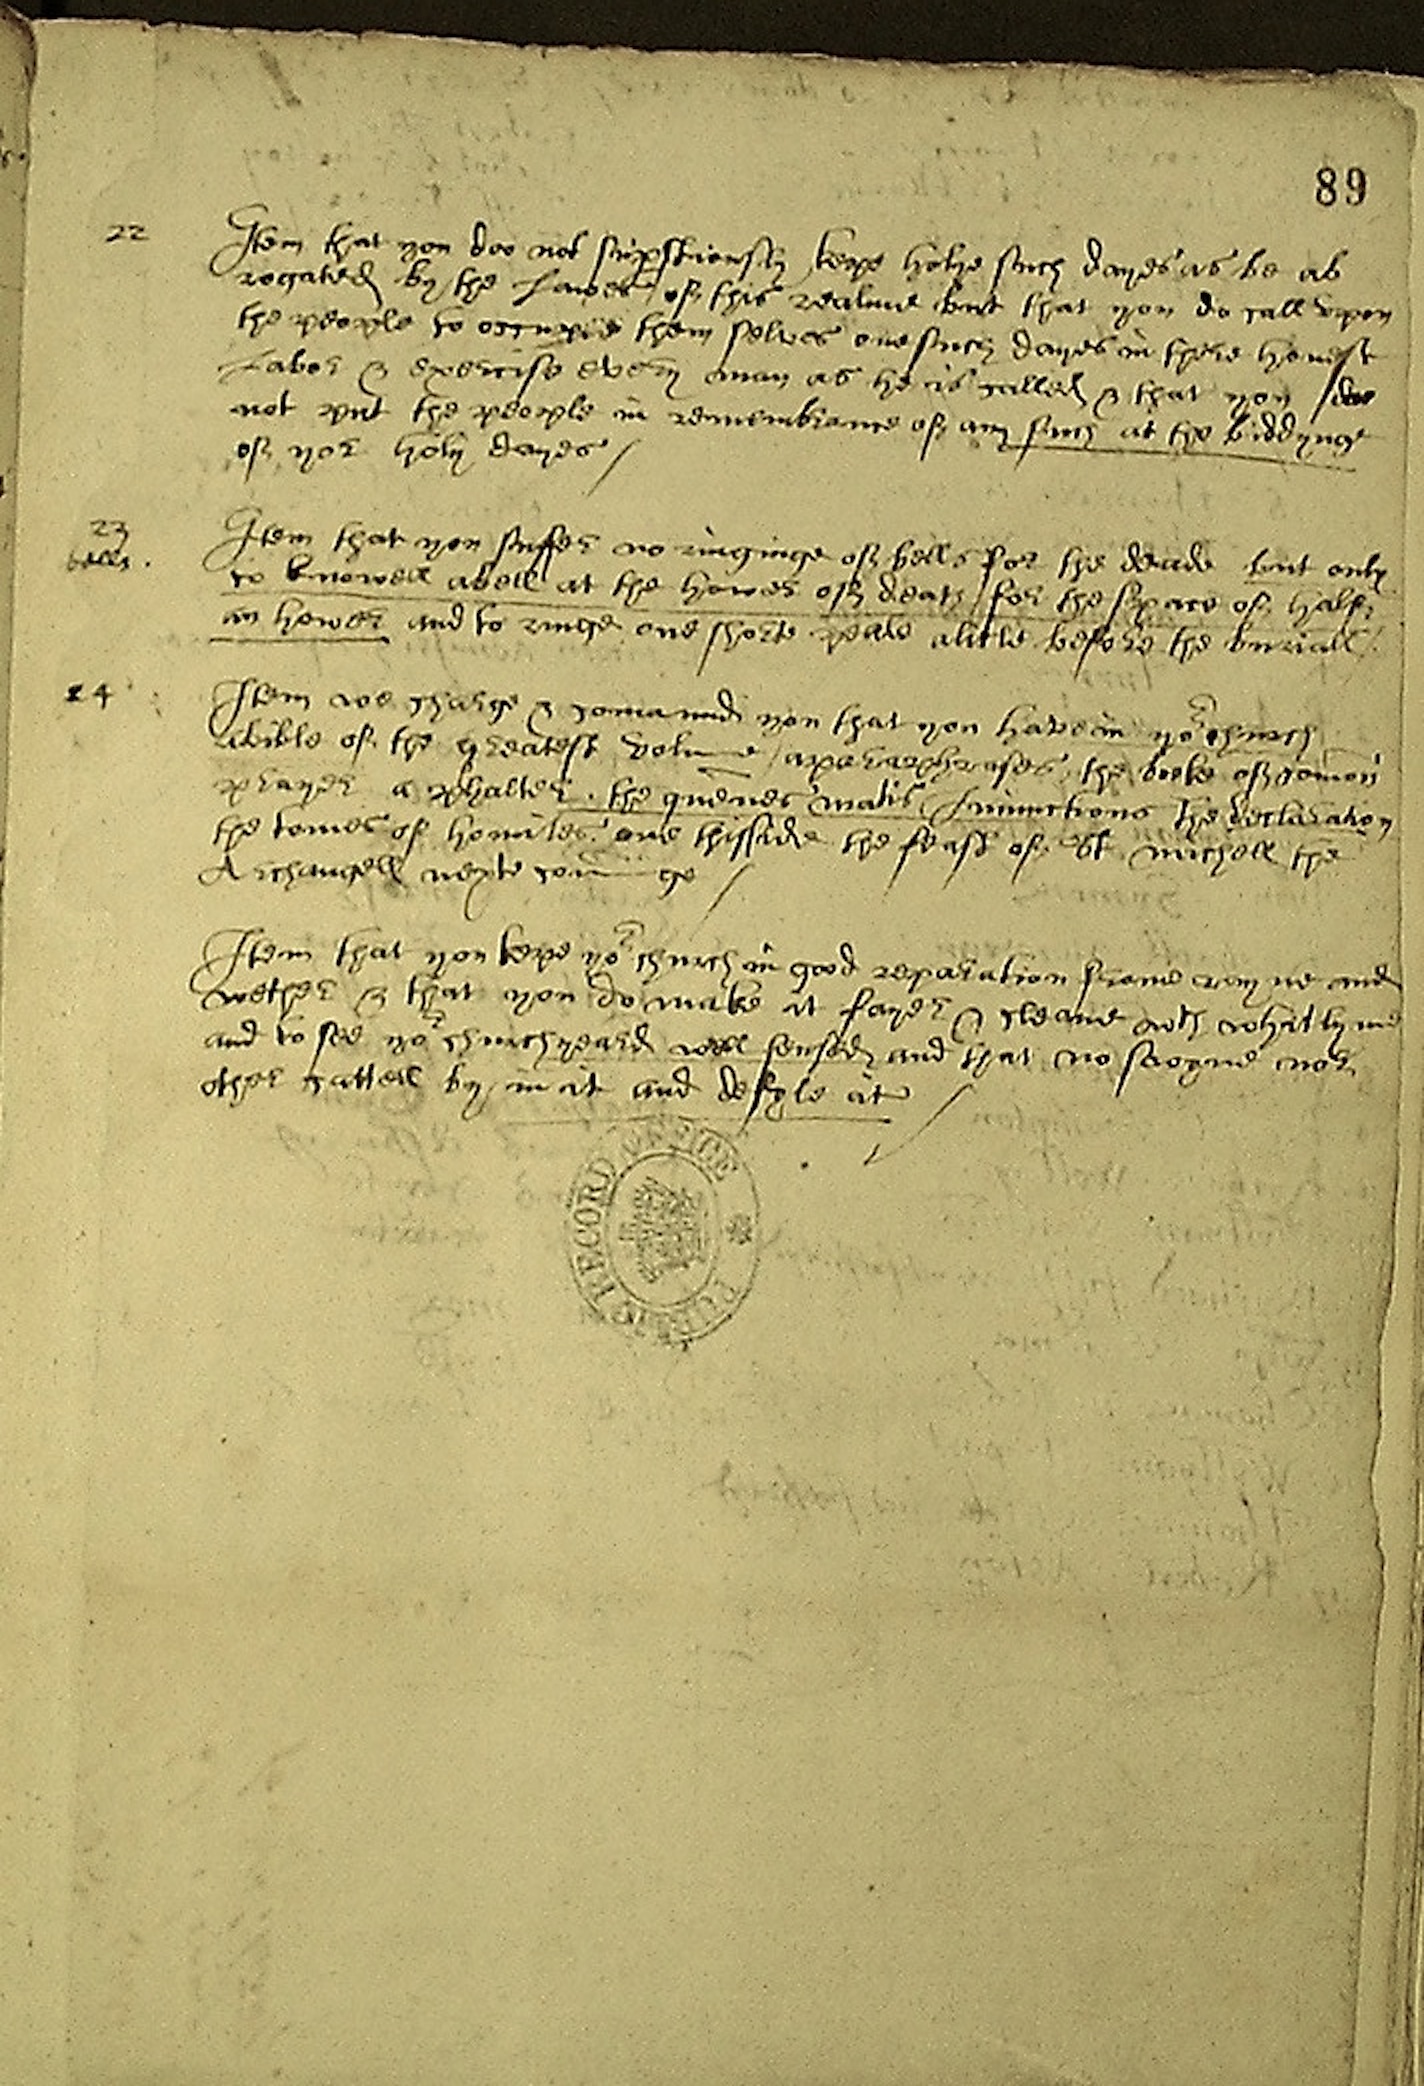 89
22 Item that you doo not sup̱stiously kepe holye such dayes as be ab
rogated by the Lawes of this realme but that you do call upon
the people to occupie them selves one such dayes in there honest
Labor & exercise every man as he is called & that you doo
not put the people in remembrance of any such at the biddynge
of yor holy dayes /
23 Item that you suffer no ringinge of bells for the deade but only
bells. to knowell a bell at the hower of death for the space of half
an hower and to ringe one shorte peale a litle before the buriall /
24 Item we charge & comaund you that you have in yor church
a bible of the greatest volume / a paraphrases, the boke of comon
prayer a psalter. the quenes matis Iniunctions the declaration
the tomes of homiles. one this side the feast of St michell the
Archangell nexte cominge /
Item that you kepe yor church in good reparation frome rayne and
wether & that you do make it fayer & cleane with whit lyme
and to see yor churchyeard well fensed and that no swyne nor
other cattell ly in it and defyle it /
PUBLIC RECORD OFFICE